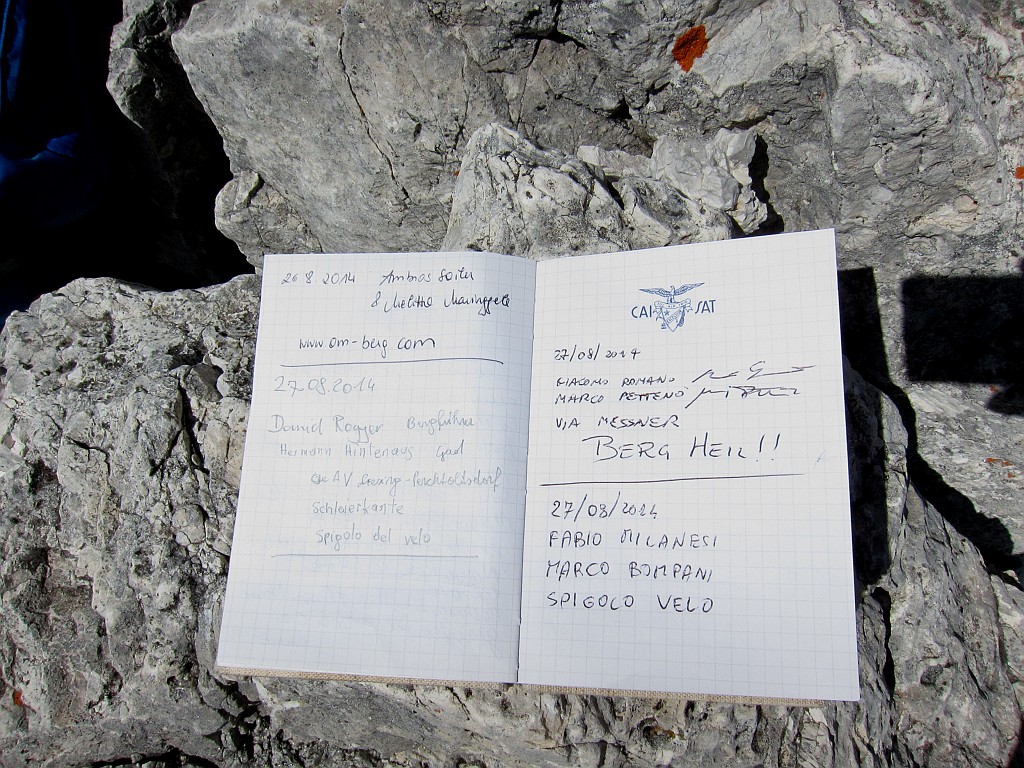 26 8 2014 Ambros
&
www.am-berg.com
27.08.2014
Daniel Rogger Bergführer
Hermann Hinteraus Gast
ÖAV
Schleierkante
Spigolo del velo
CAI SAT
27/08/2014
GIACOMO ROMANO
MARCO PETTENO
VIA MESSNER
BERG HEIL!!
27/08/2014
FABIO MILANESI
MARCO BOMPANI
SPIGOLO VELO